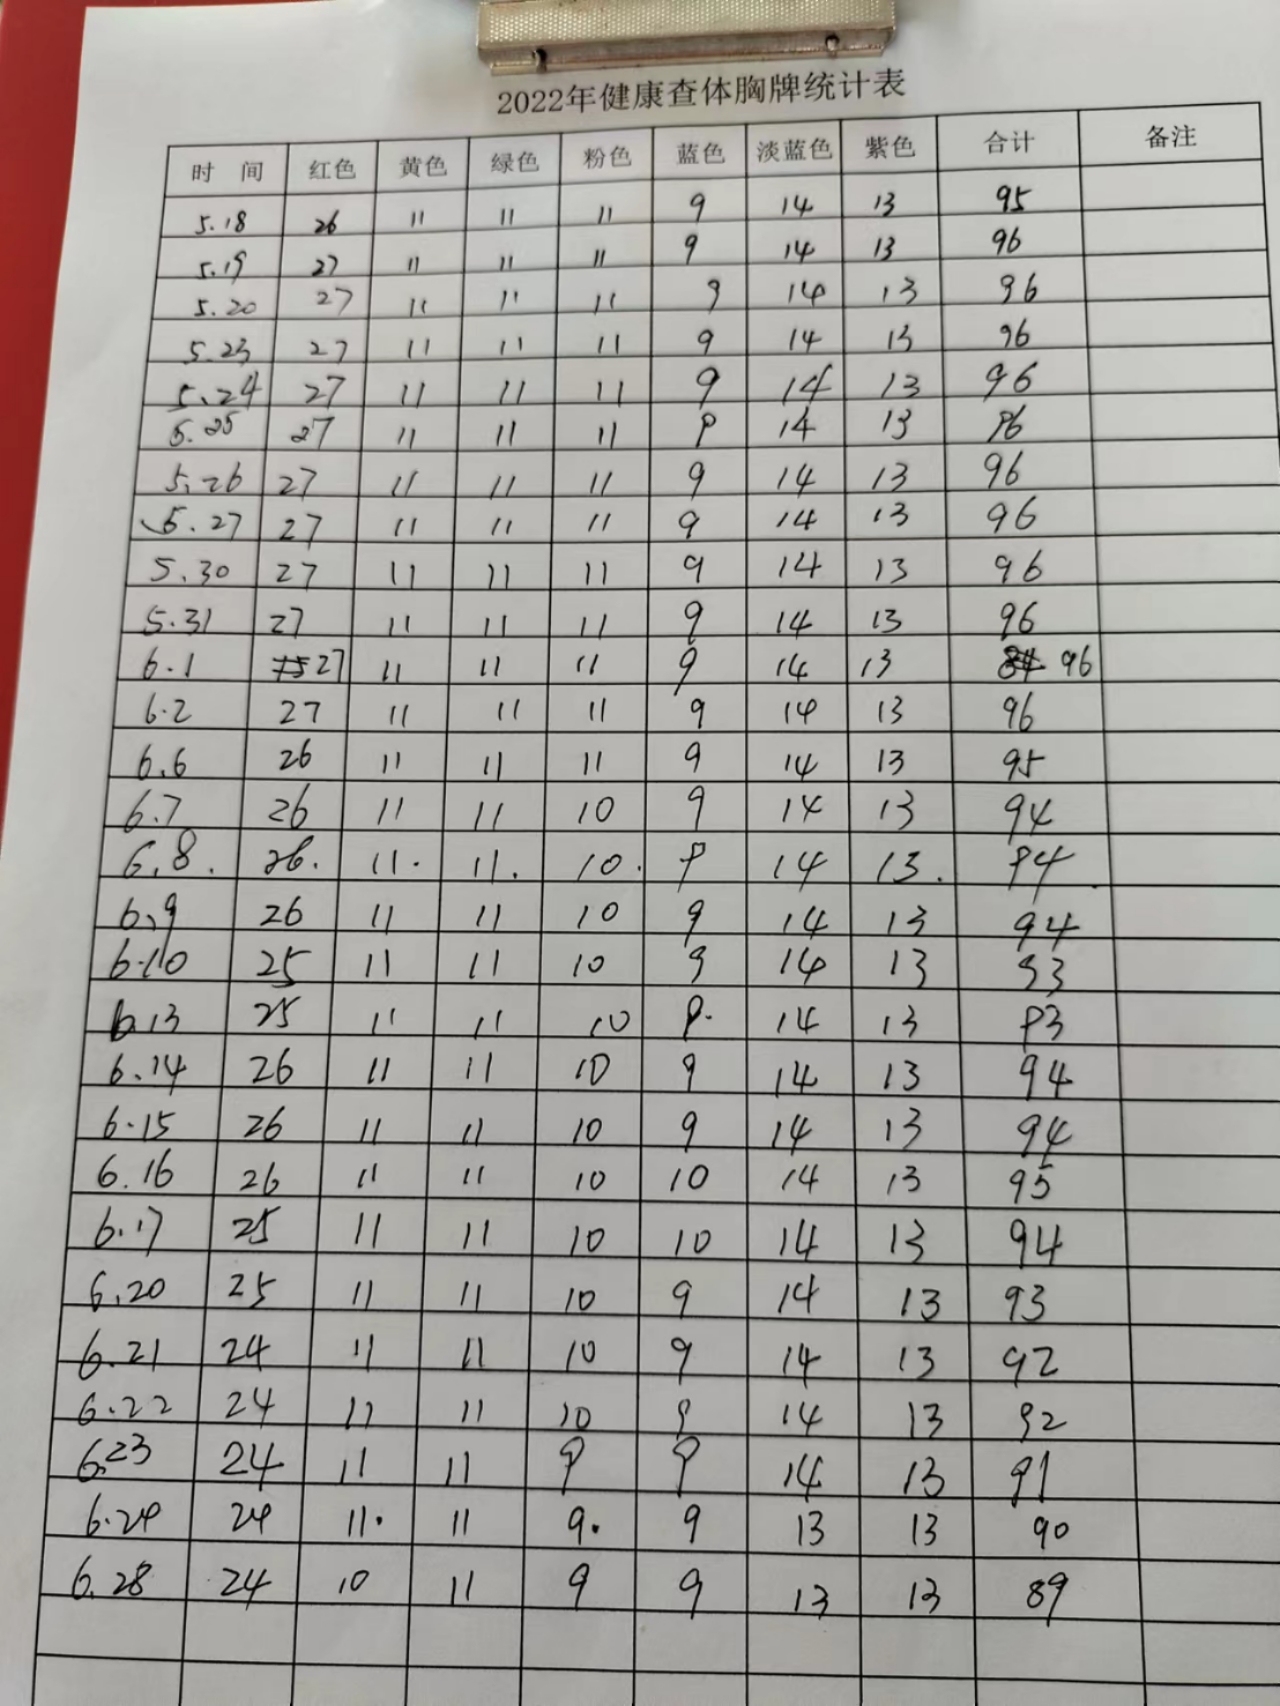 2022年健康查体胸牌统计表
时 间 红色 黄色 绿色 粉色 蓝色 淡蓝色 紫色 合计 备注
5.18 26 11 11 11 9 14 13 95
5.19 27 11 11 11 9 14 13 96
5.20 27 11 11 11 9 14 13 96
5.23 27 11 11 11 9 14 13 96
5.24 27 11 11 11 9 14 13 96
5.25 27 11 11 11 9 14 13 96
5.26 27 11 11 11 9 14 13 96
5.27 27 11 11 11 9 14 13 96
5.30 27 11 11 11 9 14 13 96
5.31 27 11 11 11 9 14 13 96
6.1 27 11 11 11 9 14 13 96
6.2 27 11 11 11 9 14 13 96
6.6 26 11 11 11 9 14 13 95
6.7 26 11 11 10 9 14 13 94
6.8. 26. 11. 11. 10. 9 14 13. 94.
6.9 26 11 11 10 9 14 13 94
6.10 25 11 11 10 9 14 13 93
6.13 25 11 11 10 9. 14 13 93
6.14 26 11 11 10 9 14 13 94
6.15 26 11 11 10 9 14 13 94
6.16 26 11 11 10 10 14 13 95
6.17 25 11 11 10 10 14 13 94
6.20 25 11 11 10 9 14 13 93
6.21 24 11 11 10 9 14 13 92
6.22 24 11 11 10 9 14 13 92
6.23 24 11 11 9 9 14 13 91
6.24 24 11. 11 9. 9 13 13 90
6.28 24 10 11 9 9 13 13 89